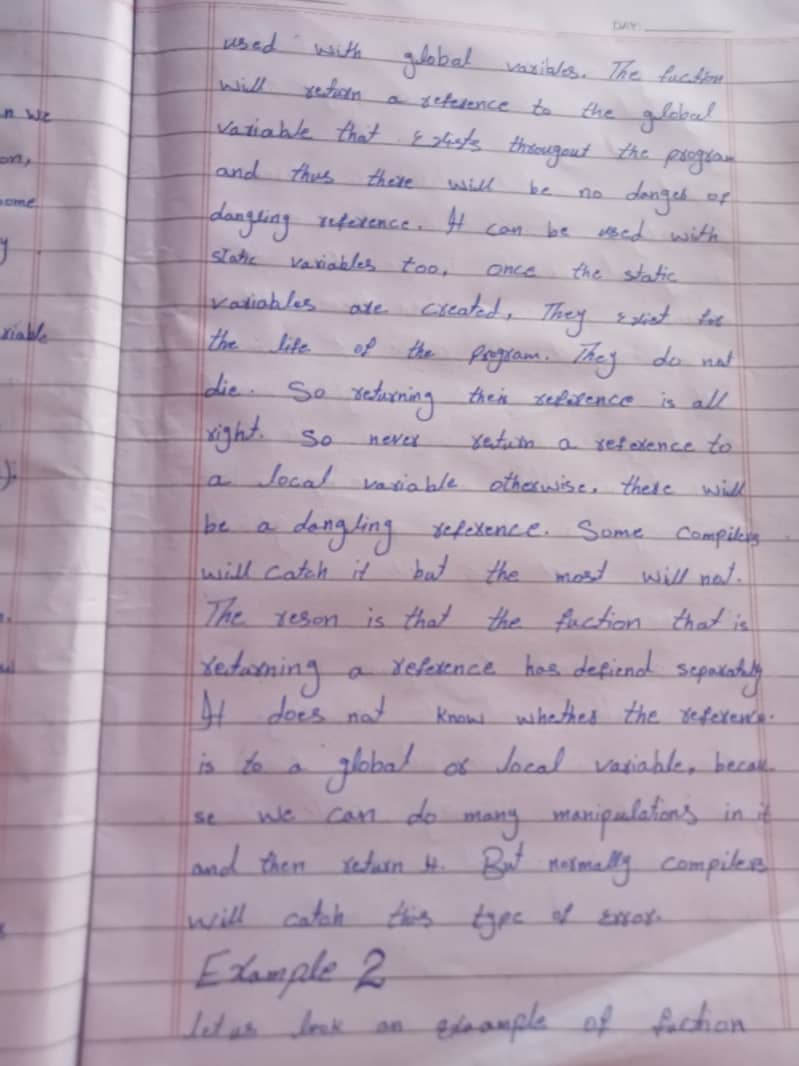 DAY:
n we
on,
ome
y
riable
).
used with global variables. The fuction
will return a reference to the global
variable that Exists througout the program
and thus there will be no danger of
dangling reference. It can be used with
static variables too, once the static
variables are created, They Exist for
the life of the program. They do not
die. So returning their reference is all
right. So never return a reference to
a local variable otherwise, there will
be a dangling reference. Some compilers
will catch it but the most will not.
The reson is that the fuction that is
returning a reference has defiend separately
It does not know whether the reference.
is to a global or local variable, becau
se we can do many manipulations in it
and then return it. But normally compilers
will catch this type of Error.
Example 2
let us look an example of fuction